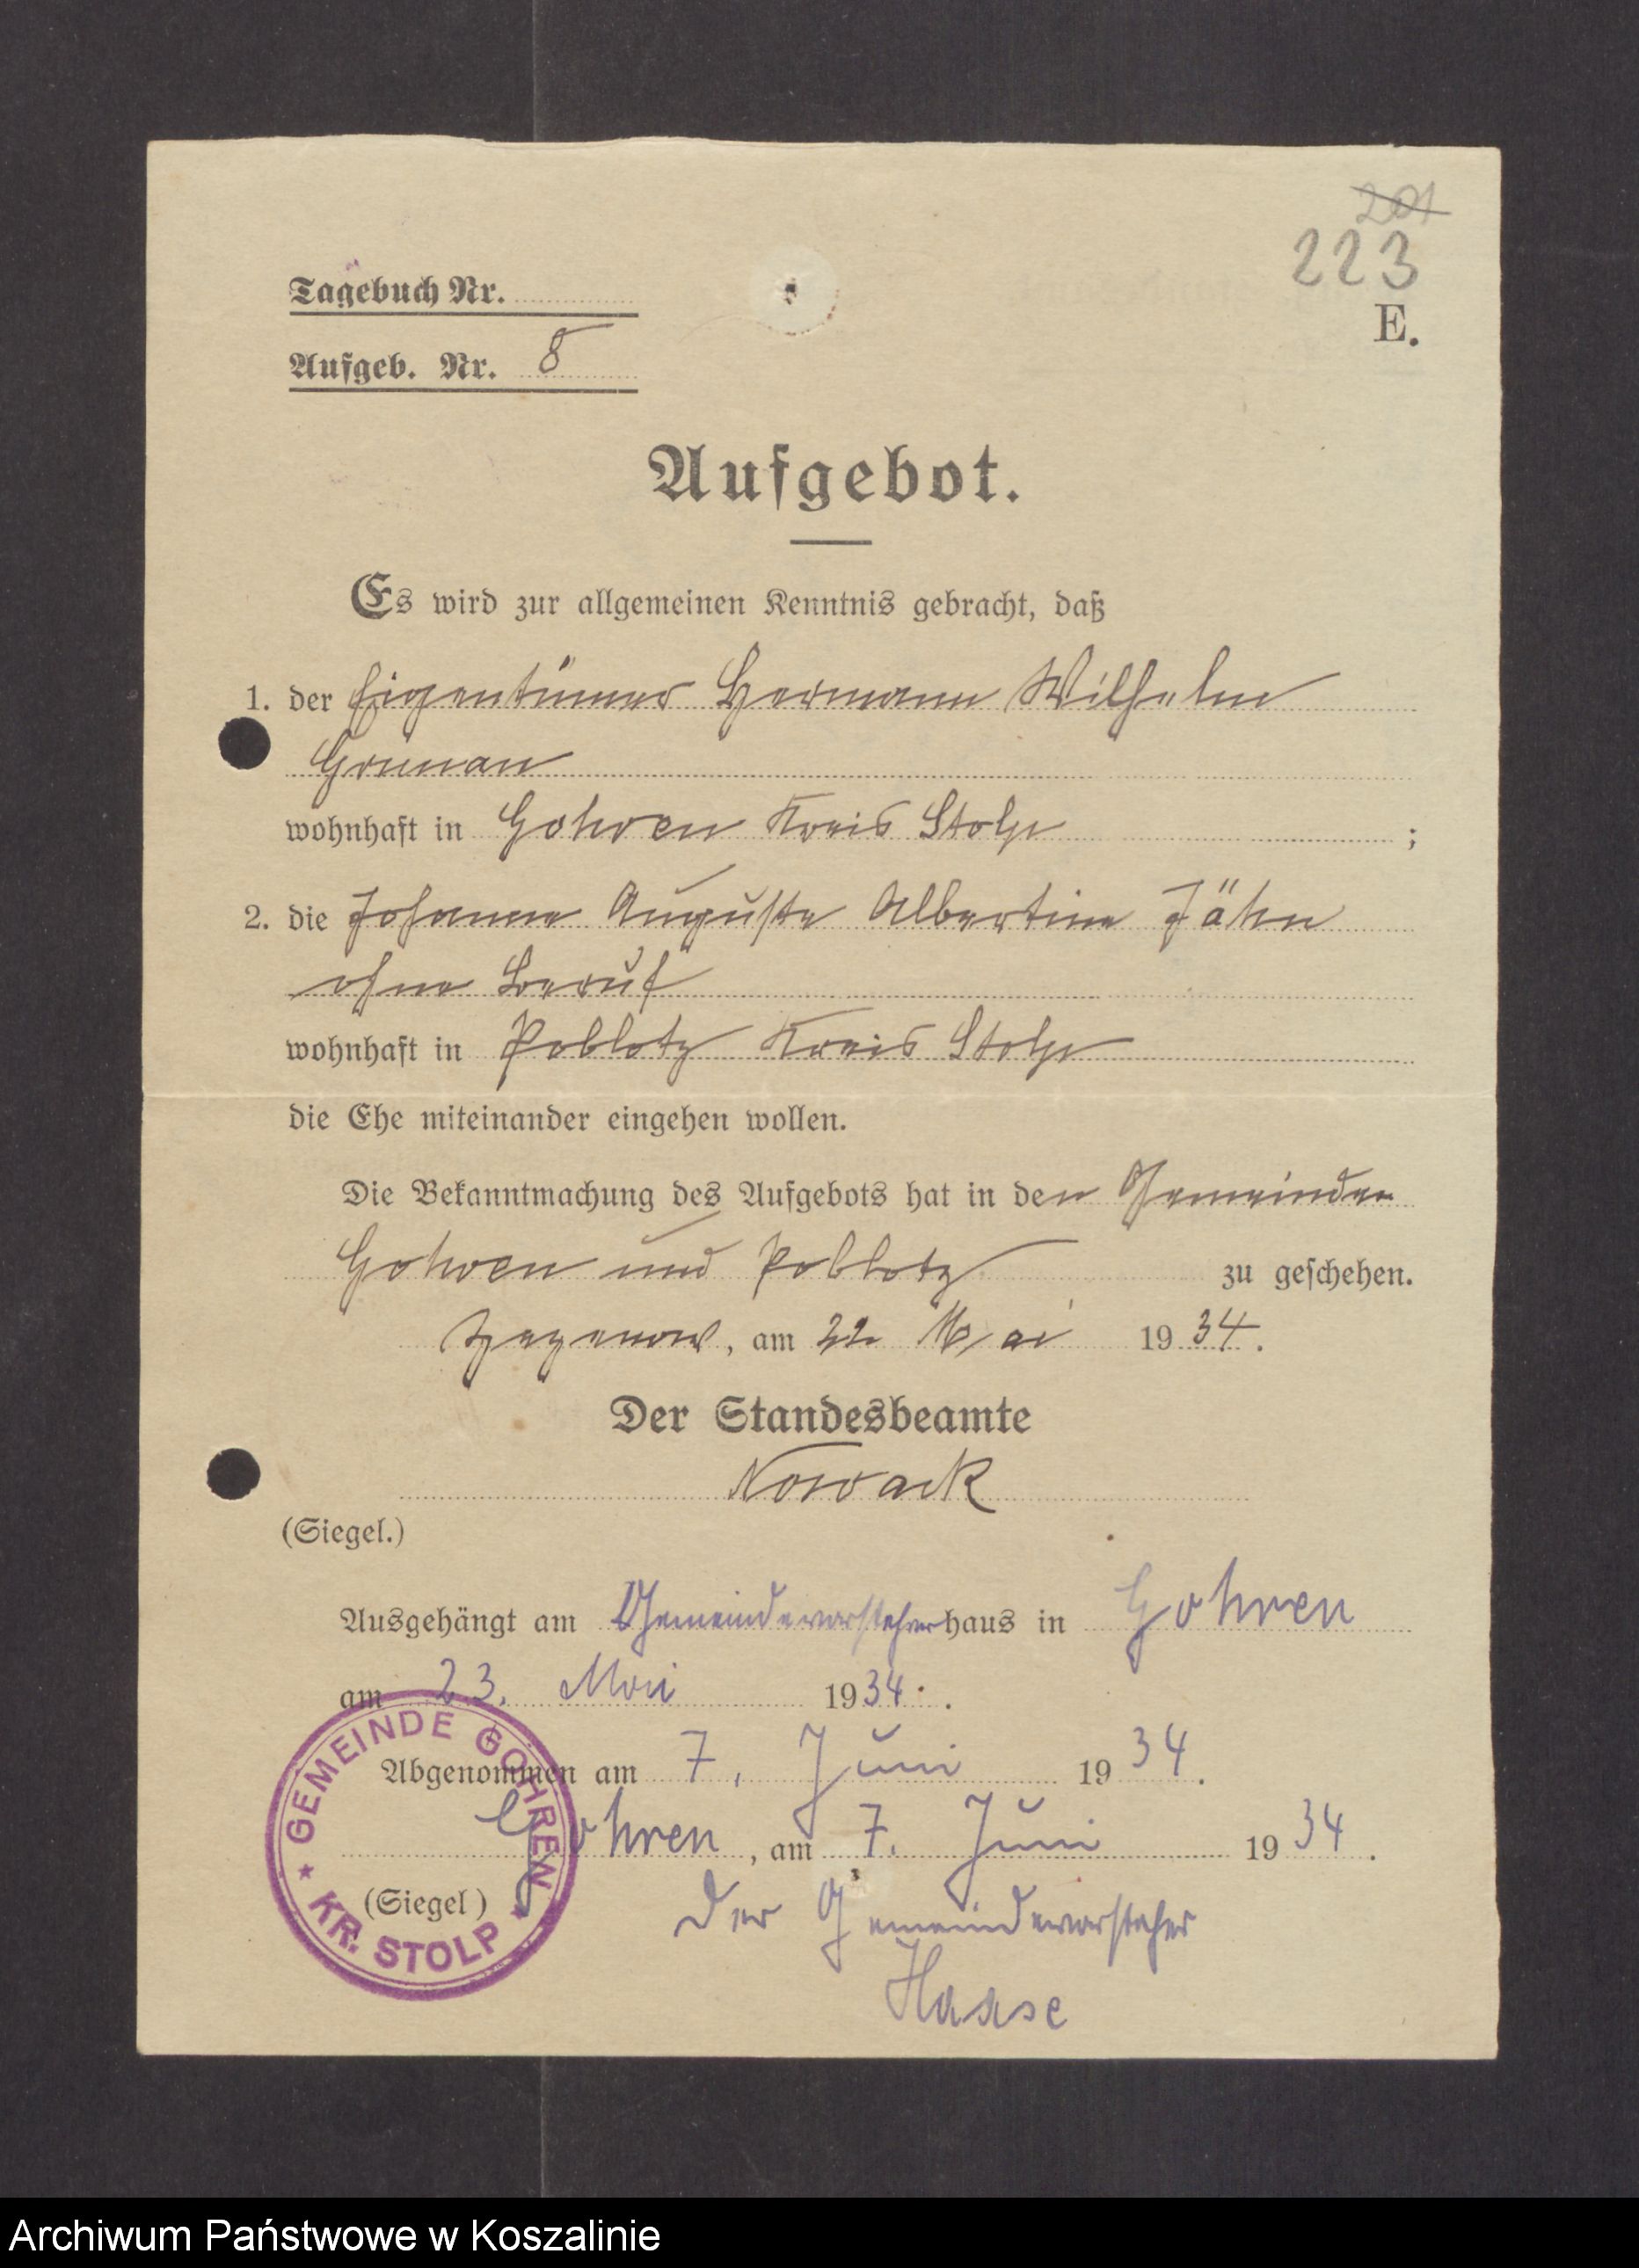 201
223
E.
Tagebuch Nr.
Aufgeb. Nr. 8
Aufgebot.
Es wird zur allgemeinen Kenntnis gebracht, daß
1. der Eigentümer Hermann Wilhelm
wohnhaft in Gohren Kreis Stolp ;
2. die Johanne Auguste Albertine Jähn
ohne Beruf
wohnhaft in Poblotz Kreis Stolp
die Ehe miteinander eingehen wollen.
Die Bekanntmachung des Aufgebots hat in den Gemeinden
Gohren und Poblotz zu geschehen.
Zezenow, am 22. Mai 1934.
Der Standesbeamte
Nowack
(Siegel.)
Ausgehängt am Gemeindevorsteherhaus in Gohren
am 23. Mai 1934.
Abgenommen am 7. Juni 1934.
Gohren, am 7. Juni 1934.
(Siegel)
Der Gemeindevorsteher
Haase
GEMEINDE GOHREN
* KR. STOLP *
Archiwum Państwowe w Koszalinie